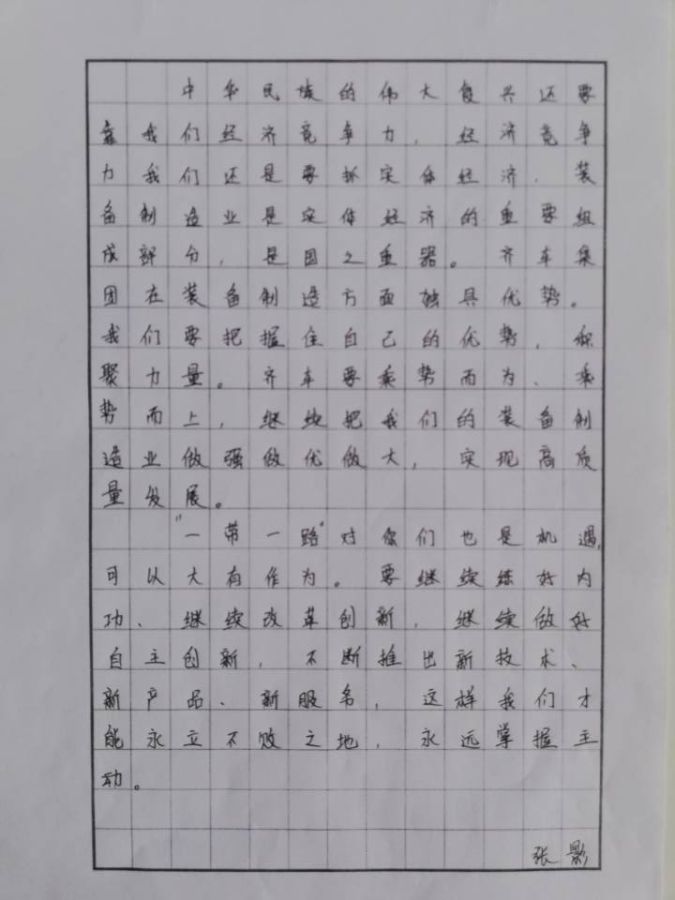 中华民族的伟大复兴还要
靠我们经济竞争力，经济竞争
力我们还是要抓实体经济，装
备制造业是实体经济的重要组
成部分，是国之重器。齐车集
团在装备制造方面独具优势。
我们要把握住自己的优势，积
聚力量。齐车要乘势而为、乘
势而上，继续把我们的装备制
造业做强做优做大，实现高质
量发展。
“一带一路”对你们也是机遇，
可以大有作为。要继续练好内
功、继续改革创新，继续做好
自主创新，不断推出新技术、
新产品、新服务，这样我们才
能永立不败之地，永远掌握主
动。
张影